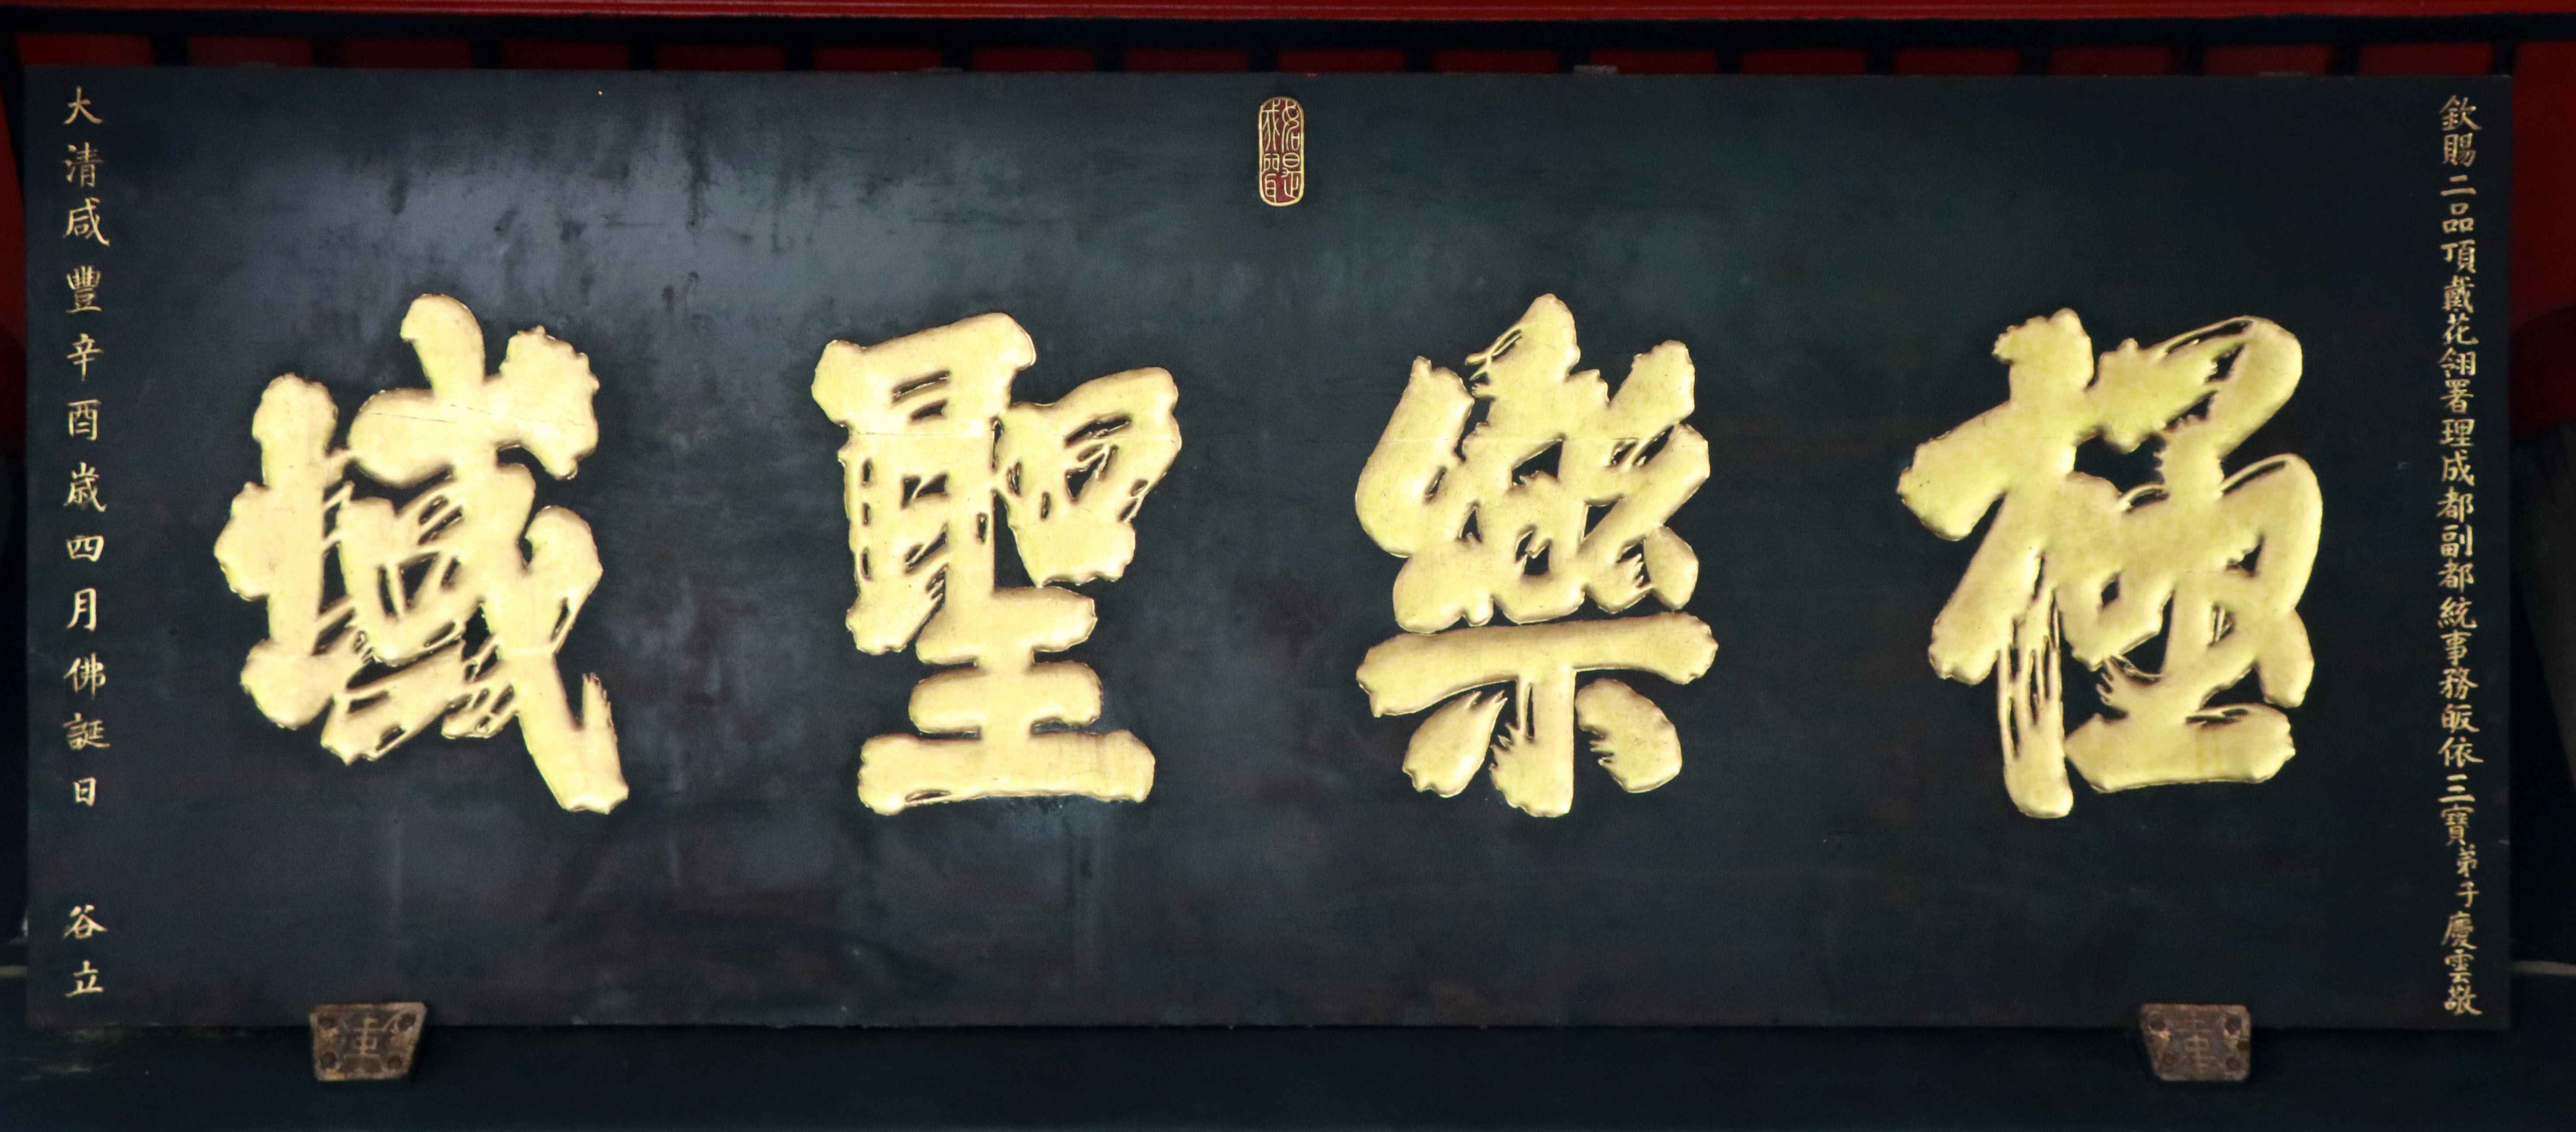 欽賜二品頂戴花翎署理成都副都統事務皈依三寶弟子慶雲敬
極樂聖域
如是我聞
大清咸豐辛酉歲四月佛誕日 谷立